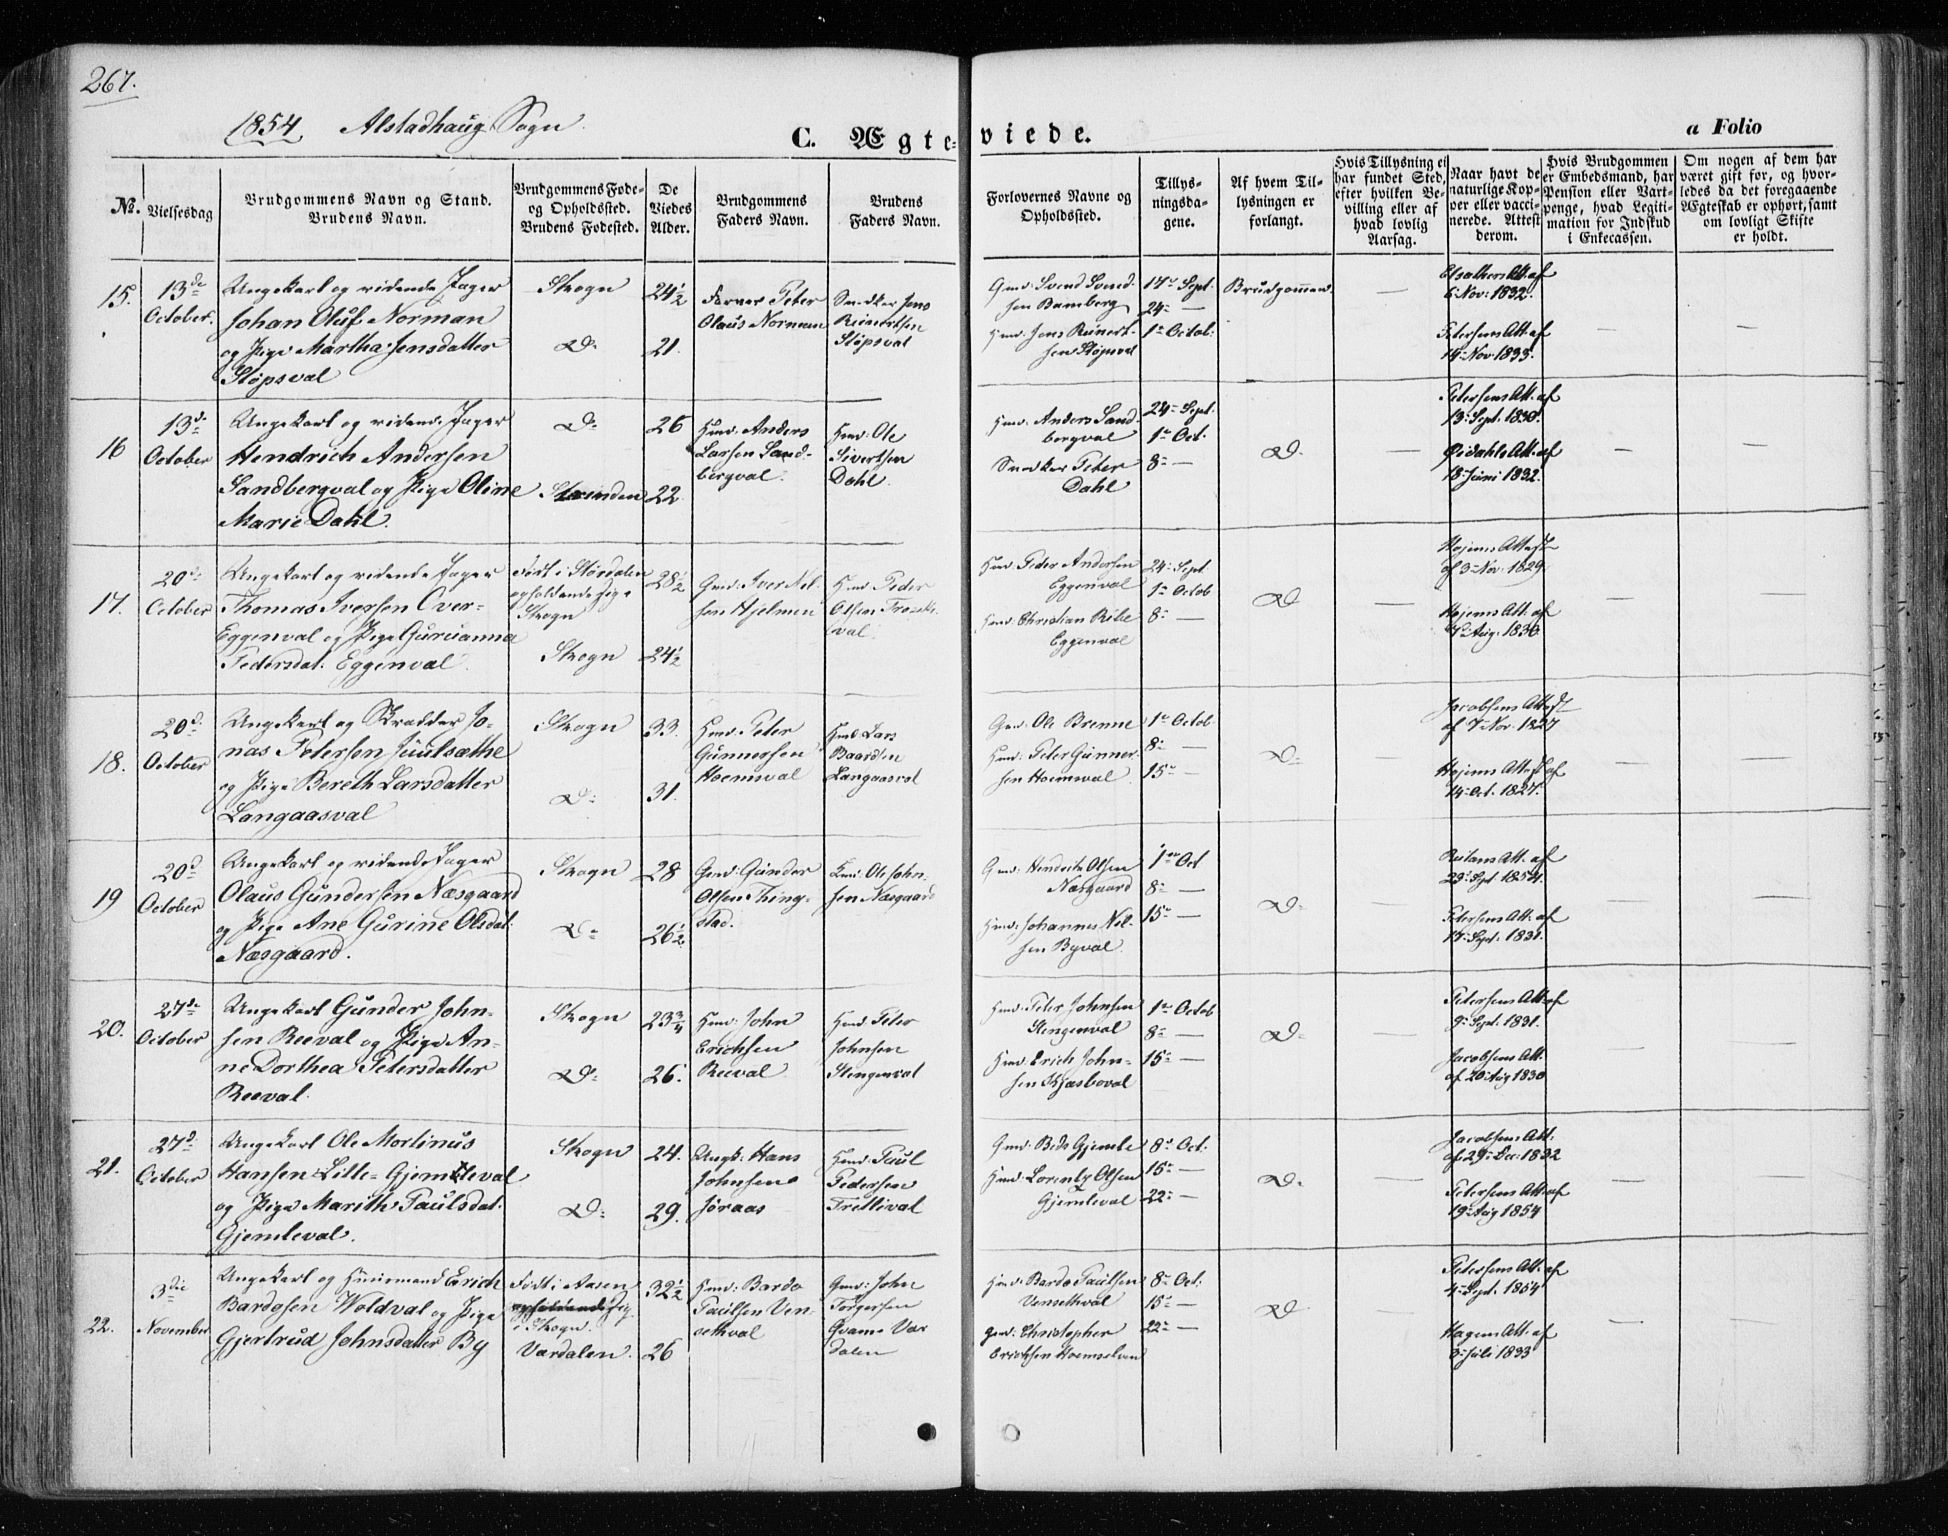 267.
1854 Alstadhaug Sogn
C. Ægte-
viede.
a Folio
No.
Vielsesdag
Brudgommens Navn og Stand.
Brudens Navn.
Brudgommens Føde-
og Opholdssted.
Brudens Fødested.
De
Viedes
Alder.
Brudgommens
Faders Navn.
Brudens
Faders Navn.
Forlovernes Navne og
Opholdssted.
Tillys-
ningsda-
gene.
Af hvem Til-
lysningen er
forlangt.
Hvis Tillysning ei
har fundet Sted,
efter hvilken Be-
villing eller af
hvad lovlig
Aarsag.
Naar havt de
naturlige Kop-
per eller vacci-
nerede. Attest
derom.
Hvis Brudgommen
er Embedsmand, har
Pension eller Vart-
penge, hvad Legiti-
mation for Indskud
i Enkecassen.
Om nogen af dem har
været gift for, og hvor-
ledes da det foregaaende
Ægteskab er ophørt, samt
om lovligt Skifte
er holdt.
15.
13de
October.
Ungekarl og ridende Jæger
Johan Oluf Norman
og Pige Martha Jensdatter
Støpsval
Skogn
Do
24½
21.
Farver Peter
Olaus Norman
Snedker Jens
Reinertsen
Støpsval
Gmd: Svend Svend-
sen Bamberg
Hmd: Jens Reinert-
sen Støpsval
17de Sept:
24- —
1ste Octob:
Brudgommen.
—
Att. af
6 Nov: 1832.
Petersens Att. af
14 Nov 1833.
—
—
16
13de
October
Ungekarl og ridende Jæger
Hendrich Andersen
Sandbergval og Pige Oline
Marie Dahl.
Do
Strinden
26
22
Hmd: Anders
Larsen Sand-
bergval.
Hmd: Ole
Sivertsen
Dahl.
Hmd: Anders Sand-
bergval
Snedker Peter
Dahl
24- Sept:
1ste Oct:
8- —
Do
—
Petersens Att. af
13 Sept. 1830.
Øidahls Att. af
18 Juni 1832.
—
—
17.
20de
October
Ungekarl og ridende Jæger
Thomas Iversen Over-
Eggenval og Pige Guruanna
Pedersdat. Eggenval.
Født i Størdalen
opholdende sig i
Skogn
Skogn
28½
24½
Gmd: Iver Nil-
sen Hjelmen
Hmd Peder
Olsen
val.
Hmd Peder Andersen
Eggenval
Hmd: Christian Ribe
Eggenval
24- Sept
1ste Octob
8- —
Do
—
Højems Attest
af 3 Nov: 1829.
Højems Att. af
7de Aug: 1830.
—
—
18.
20d
October
Ungekarl og Skrædder Jo-
nas Petersen Juulsæthe
og Pige Bereth Larsdatter
Langaasval
Skogn
Do
33.
31.
Hmd: Peter
Gunnersen
Hoemsval
Hmd Lars
Baardsen
Langaasval
Gmd: Ole Brenne
Hmd: Peter Gunner-
sen Hoemsval
1ste Octob
8- —
15- —
Do
—
Jacobsens Attest
af 7 Nov. 1827
Højems Attest af
14 Oct. 1827.
—
—
19
20d
October
Ungekarl og ridende Jæger
Olaus Gundersen Næsgaard
og Pige Ane Gurine Olsdat:
Næsgaard.
Skogn
Do
28
26½
Gmd: Gunder
Olsen Thing-
stad.
Hmd: Ole John-
sen Næsgaard
Gmd: Hendrich Olsen
Næsgaard
Hmd: Johannes Nil-
sen Byval.
1ste Oct
8- —
15- —
Do
—
Att. af
23 Sept 1854.
Petersens Att. af
17 Sept: 1831.
—
—
20.
27de
October
Ungekarl Gunder John-
sen Reeval og Pige An-
ne Dorthea Petersdatter
Reeval.
Skogn
Do
23¾
26.
Hmd: John
Erichsen
Reeval
Hmd: Peter
Johnsen
Stengenval
Hmd: Peter Johnsen
Stengenval
Hmd: Erich John-
sen
1ste Octob
8- —
15- —
Do
Petersens Att. af
9 Sept: 1831.
Jacobsens Att.
af 20 Aug 1830
—
—
21.
27d
October
Ungekarl Ole Mortinus
Hansen Lille-Gjemleval
og Pige Marith Paulsdat.
Gjemleval.
Skogn
Do
24.
29.
Ungk: Hans
Johnsen
Jøraas
Hmd: Paul
Pedersen
Tretlival
Gmd: Gjemle
Hmd: Lorentz Olsen
Gjemleval
8d Oct:
15- —
22- —
Do
—
Jacobsens Att:
af 29 Dec: 1832
Petersens Att. af
19 Aug 1854
—
—
22.
3die
November
Ungekarl og Huusmand Erich
Bardosen Woldval og Pige
Gjertrud Johnsdatter By
Født i Aasen
opholdende sig
i Skogn.
Værdalen.
32½
26
Hmd: Bardo
Paulsen Ven-
sethval
Gmd: John
Torgersen
Qvam Vær
dalen
Hmd: Bardo Paulsen
Vensethval
Gmd: Christopher
Erichsen
8de Oct:
15- —
22- —
Do
—
Petersens Att. af
4 Sept. 1854
Hagens Att. af
3 Juli 1833
—
—